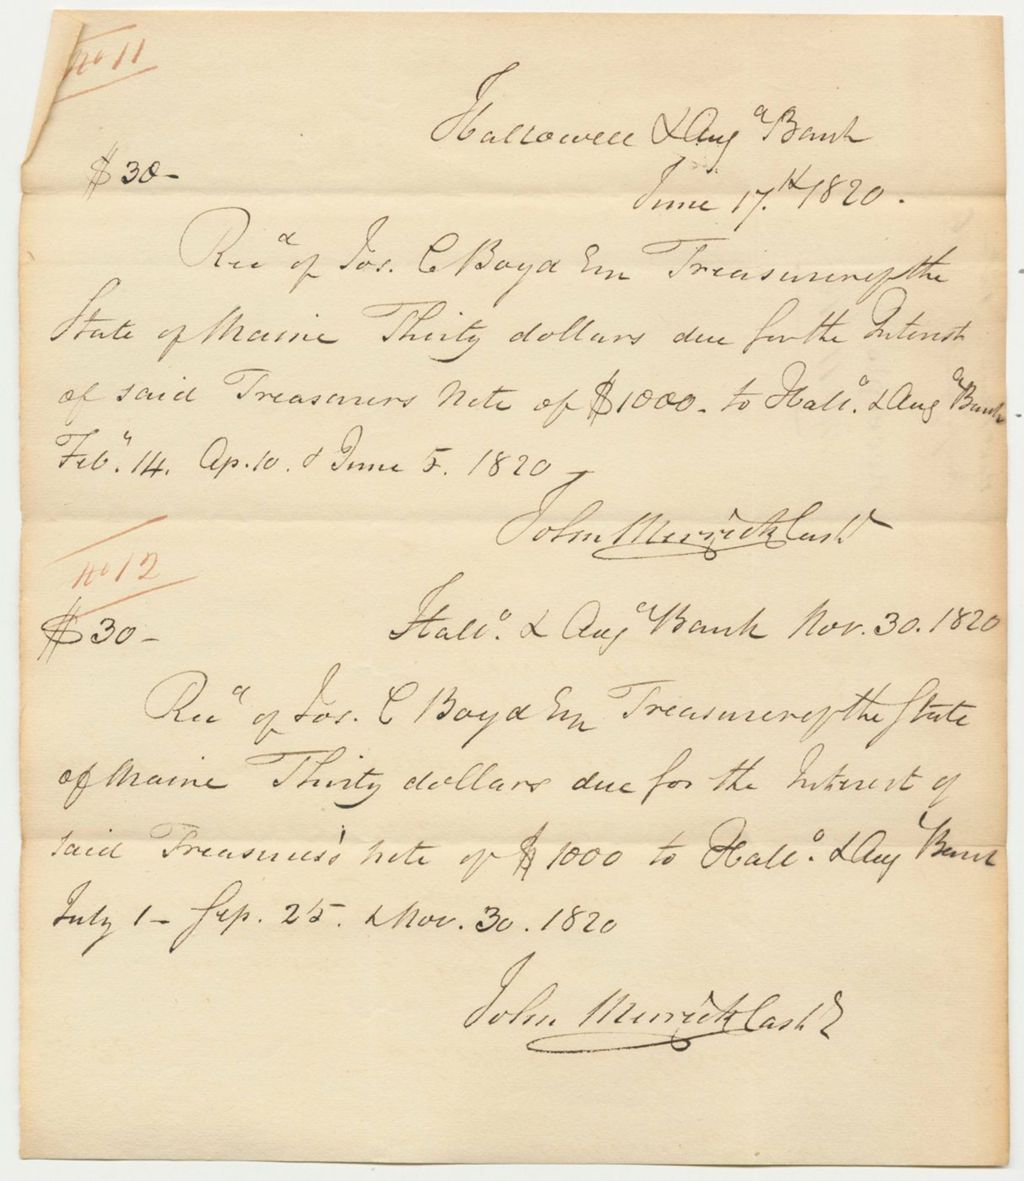 No 11
Hallowell & Aug.a Bank
$30-
June 17.th 1820.
Recd of Jos. C Boyd Esq Treasurer of the
State of Maine Thirty dollars due for the Interest
of said Treasurers Note of $1000- to Hallo. & Auga Bank
Feby. 14. Ap. 10. & June 5. 1820-
John Merrick Cashr
No 12
$30-
Hallo. & Auga Bank Nov. 30. 1820
Recd of Jos. C Boyd Esq Treasurer of the State
of Maine Thirty dollars due for the Interest of
said Treasurer's note of $1000 to Hallo. & Aug Bank
July 1- Sep. 25. & Nov. 30. 1820
John Merrick Cashr